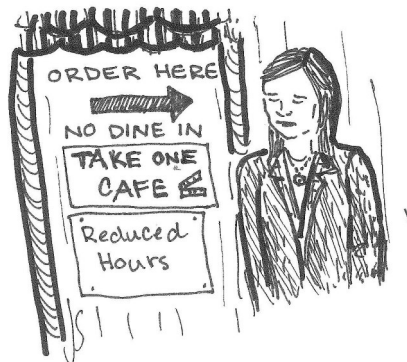 ORDER HERE
NO DINE IN
TAKE ONE
CAFE
Reduced
Hours